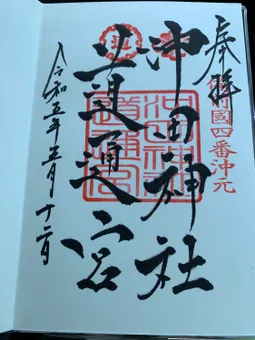 奉拝
國四番沖元
沖田神社
道通宮
令和五年五月十二日